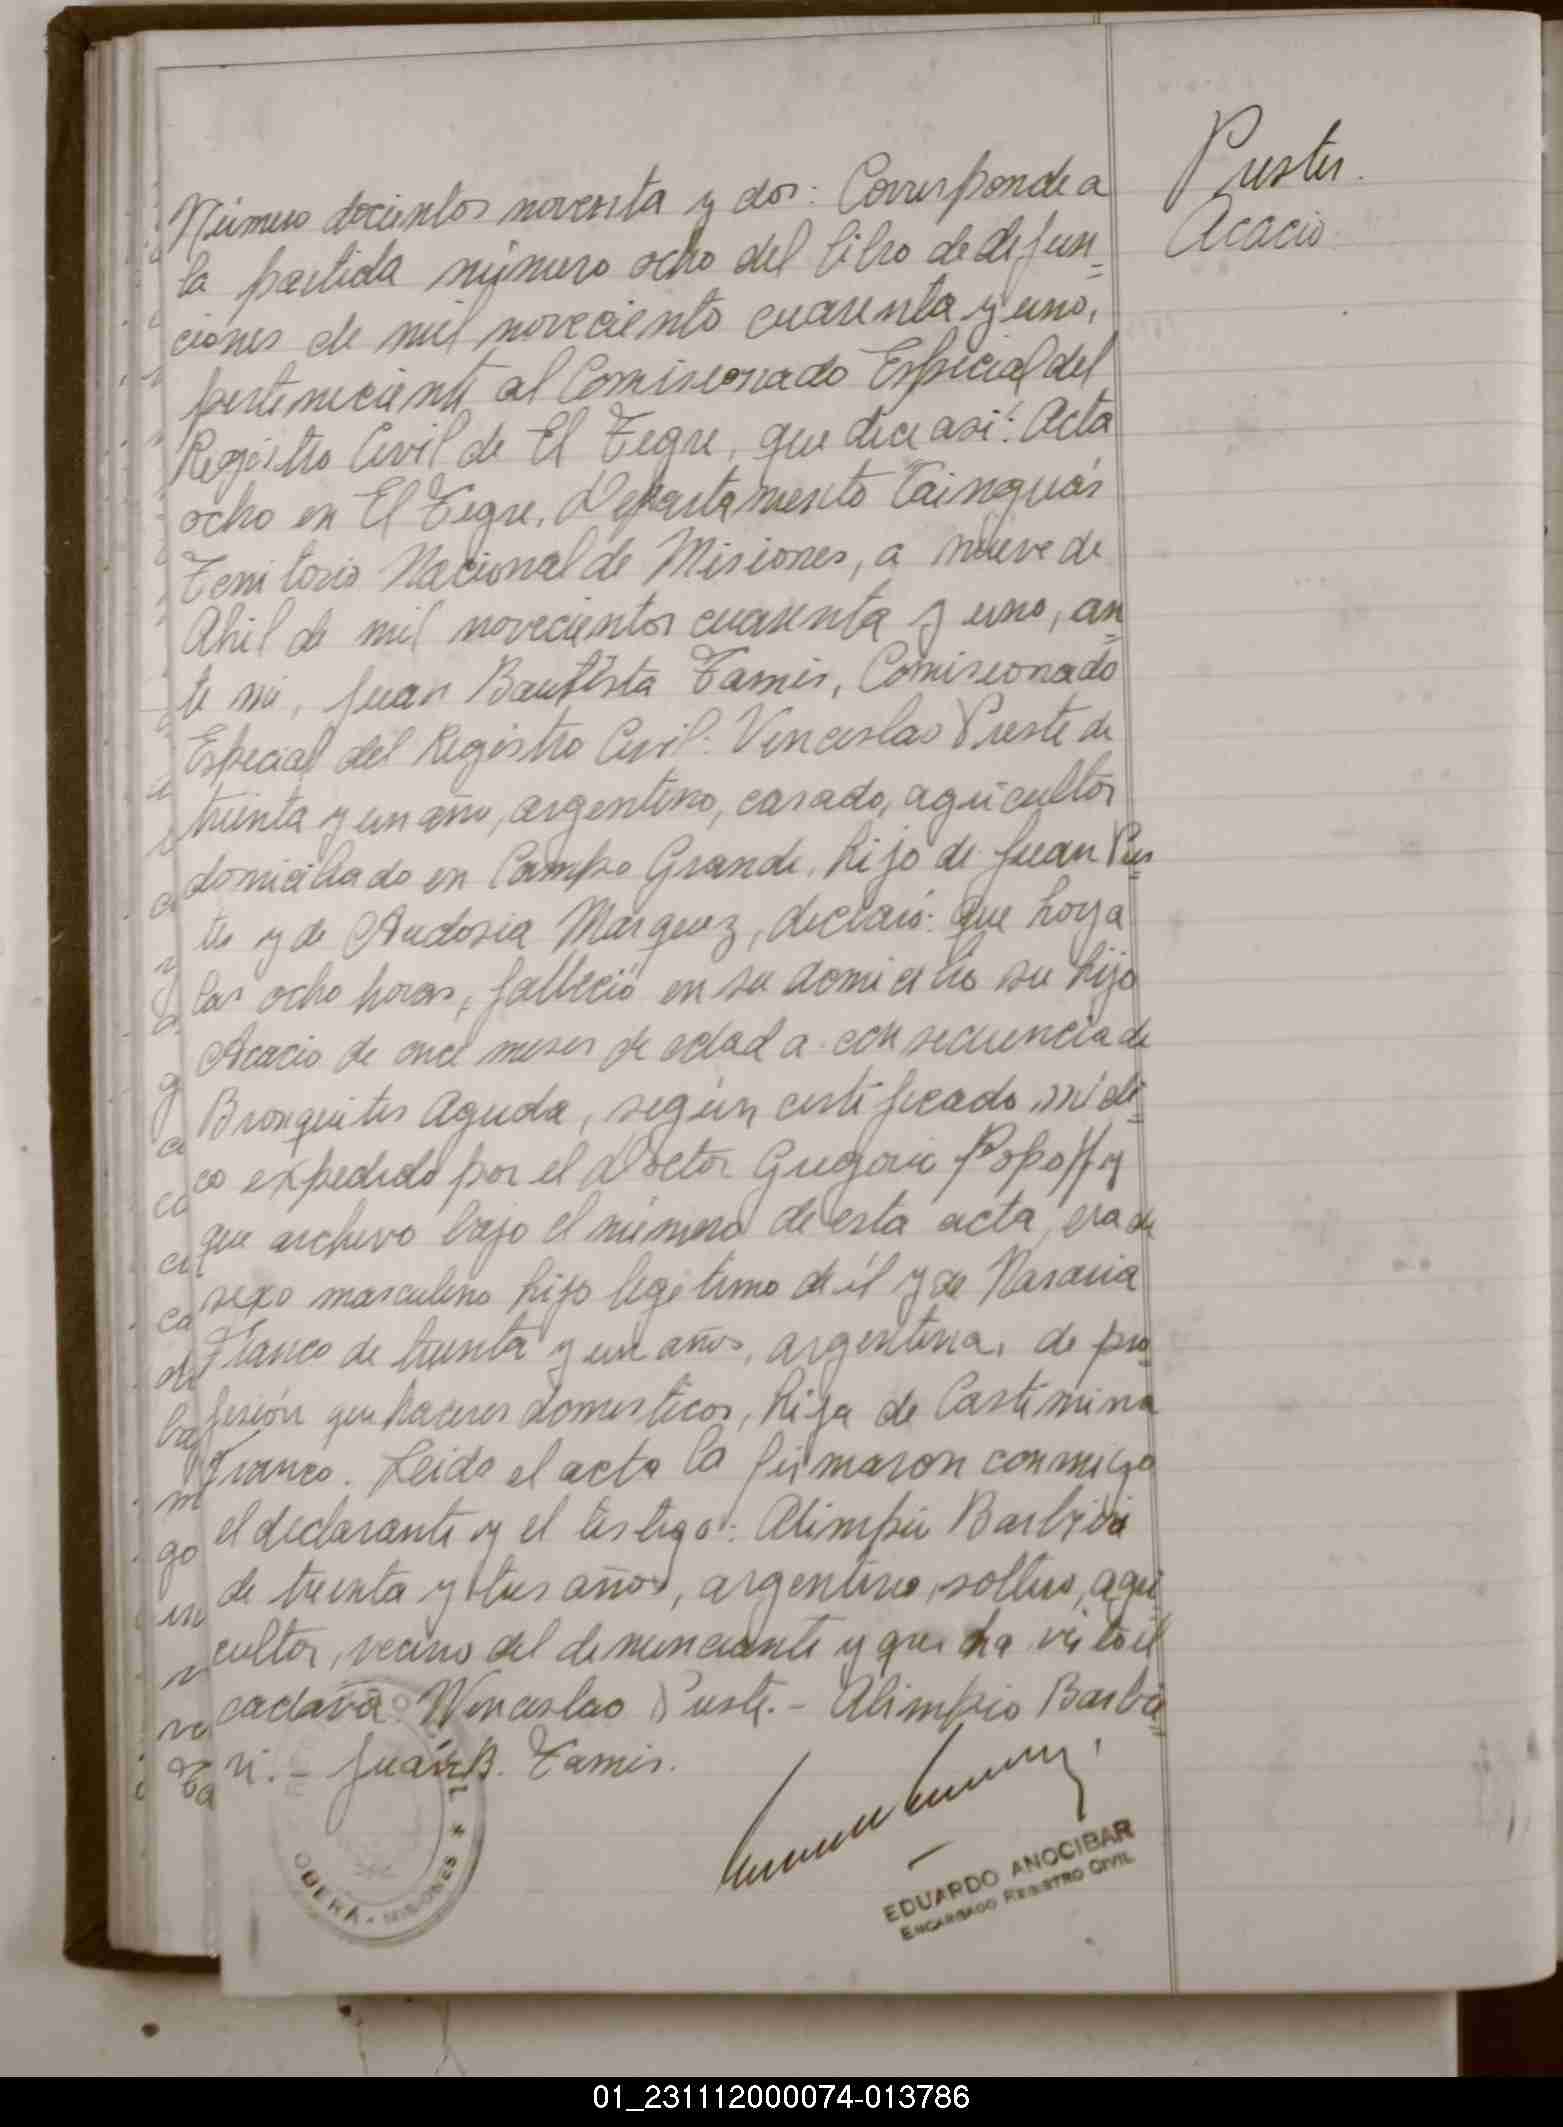 Prestes.
Acacio
Número docientos noventa y dos: Corresponde a
la partida número ocho del libro de defun=
ciones de mil noveciento cuarenta y uno,
perteneciente al Comisionado Especial del
Registro Civil de El Tigre, que dice así: Acta
ocho en El Tigre, Departamento Cainguás
Territorio Nacional de Misiones, a nueve de
Abril de mil novecientos cuarenta y uno, an=
te mi, Juan Bautista Tamis, Comisionado
Especial del Registro Civil: Venceslao Preste de
treinta y un año, argentino, casado, agricultor
domiciliado en Campo Grande, hijo de Juan Pres
te y de Audosia Marquez, declaró: que hoy a
las ocho horas, falleció en su domicilio su hijo
Acacio de once meses de edad a consecuencia de
Bronquites Aguda, según certificado médi=
co expedido por el Doctor Gregorio Popoff y
que archivo bajo el número de esta acta, era de
sexo masculino hijo legitimo de él y de Nasaria
Franco de treinta y un años, argentina, de pro
fesión quehaceres domesticos, hija de Castimina
Franco. Leida el acta la firmaron conmigo
el declarante y el testigo: Alimpio Barbieri
de treinta y tres años, argentino, soltero, agri
cultor, vecino del denunciante y que ha visto el
cadaver. Wenceslao Preste. - Alimpio Barbie=
ri. - Juan B. Tamis.
OBERA - MISIONES *
EDUARDO ANOCIBAR
ENCARGADO REGISTRO CIVIL
01_231112000074-013786